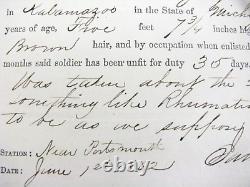 in Kalamazoo in the State of Mich
years of age, Five feet 7 3/4 inches
Brown hair, and by occupation when enlisted
months said soldier has been unfit for duty 35 days
Was taken about the
something like Rheumati
to be as we suppose
STATION: Near Portsmouth
DATE: June